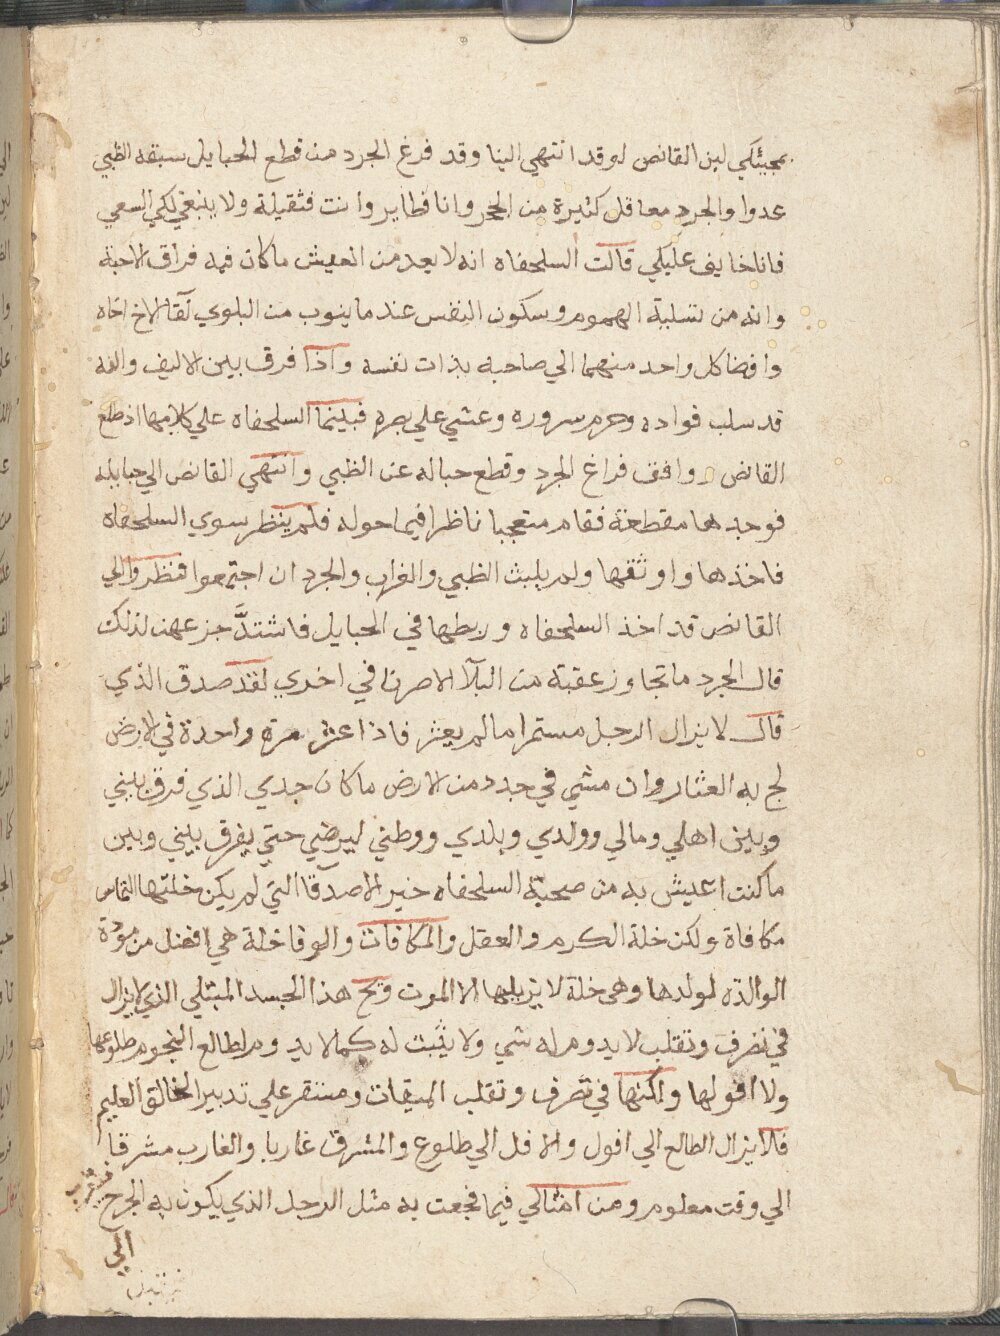 بمجيئكي لين القانص لوقد انتهي الينا وقد فرغ الجرد من قطع الحبايل سبقه الظبي
عدوا والجرد معاقل كثيرة من الحجر وانا فطاير وانت فثقيلة ولا ينبغي لكي السعي
فانا خايف عليكي قالت السلحفاه انه لا يعد من العيش ما كان فيه فراق الاحبة
وانه من تسلية الهموم وسكون النفس عند ما ينوب من البلوي لقا الاخ اخاه
وافضا كل واحد منهما الي صاحبه بذات نفسه واذا فرق بين الاليف والفه
قد سلب فواده وحرم سروره وعشي علي بصره فبينما السلحفاه علي كلامها اذ طلع
القانص ووافق فراغ الجرد وقطع حباله عن الظبي وانتهي القانص الي حبايله
فوجدها مقطعة فقام متعجبا ناظرا فيما حوله فلم ينظر سوي السلحفاه
فاخذها واوثقها ولم يلبث الظبي والغراب والجرد ان اجتمعوا فنظروا الي
القانص قد اخذ السلحفاه وربطها في الحبايل فاشتدَّ جزعهن لذلك
قال الجرد ما تجاوز عقبة من البلآ الا صرنا في اخري لقد صدق الذي
قال لا يزال الرجل مستمرا ما لم يعثر فاذا عثر مرة واحدة في الارض
لج به العثار وان مشي في جدد من الارض ما كان جدي الذي فرق بيني
وبين اهلي ومالي وولدي وبلدي ووطني ليرضي حتي يفرق بيني وبين
ما كنت اعيش به من صحبة السلحفاه خير الاصدقا التي لم يكن خلتها التماس
مكافاة ولكن خلة الكرم والعقل والمكافات والوفا خلة هي افضل من مودة
الوالدة لولدها وهي خلة لا يزيلها الا الموت ويح هذا الجسد المبتلي الذي لا يزال
في تصرف وتقلب لا يدوم له شي ولا يثبت له كما لا يدوم لطالع النجوم طلوعها
ولا افولها ولكنها في تصرف وتقلب الميقات ومستقر علي تدبير الخالق العليم
فلا يزال الطالع الي افول والافل الي طلوع والمشرق غاربا والغارب مشرقا
الي وقت معلوم ومن امثالي فيما فجعت به مثل الرجل الذي يكون به الجرح